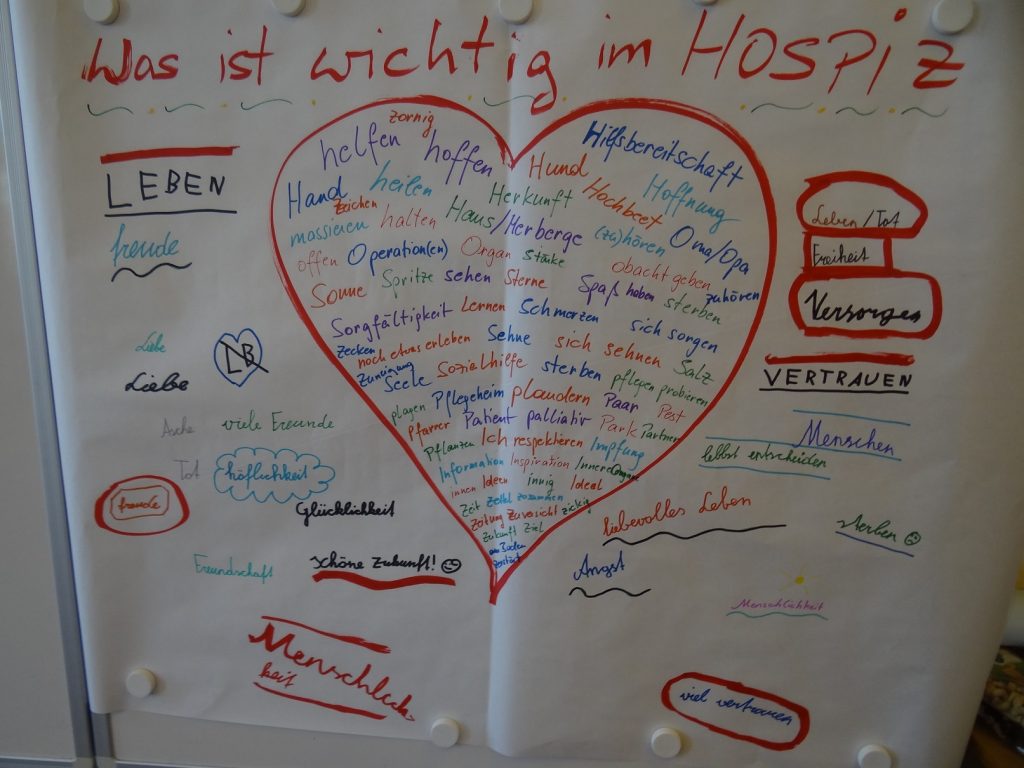 Was ist wichtig im HOSPiZ
LEBEN
freude
Liebe
LB
Liebe
Asche
viele Freunde
Tot
höflichkeit
freude
Glücklichkeit
Freundschaft
schöne Zukunft!
Menschlich-
keit
zornig
helfen hoffen Hund Hilfsbereitschaft
Hand heilen Herkunft Hochbeet Hoffnung
zeichen
massieren halten Haus/Herberge (zu)hören Oma/Opa
offen Operation(en) Organ Stärke obacht geben
Sonne Spritze sehen Sterne Spaß haben sterben zuhören
Sorgfältigkeit Lernen Schmerzen sich sorgen
Zecken noch etwas erleben Sehne sich sehnen Salz
Zuneigung
Seele Sozialhilfe sterben pflegen probieren
plagen Pflegeheim plaudern Paar Pest
Pfarrer Patient palliativ Park Partner
Pflanzen Ich respektieren Impfung
Information Inspiration Innere Organe
innen Ideen innig Ideal
Zeit Zettel zusammen
Zeitung Zuversicht zickig
Zukunft Ziel
am Boden
zerstört
Leben/Tot
Freiheit
Versorgen
VERTRAUEN
Menschen
selbst entscheiden
liebevolles Leben
sterben
Angst
Menschlichkeit
viel vertrauen